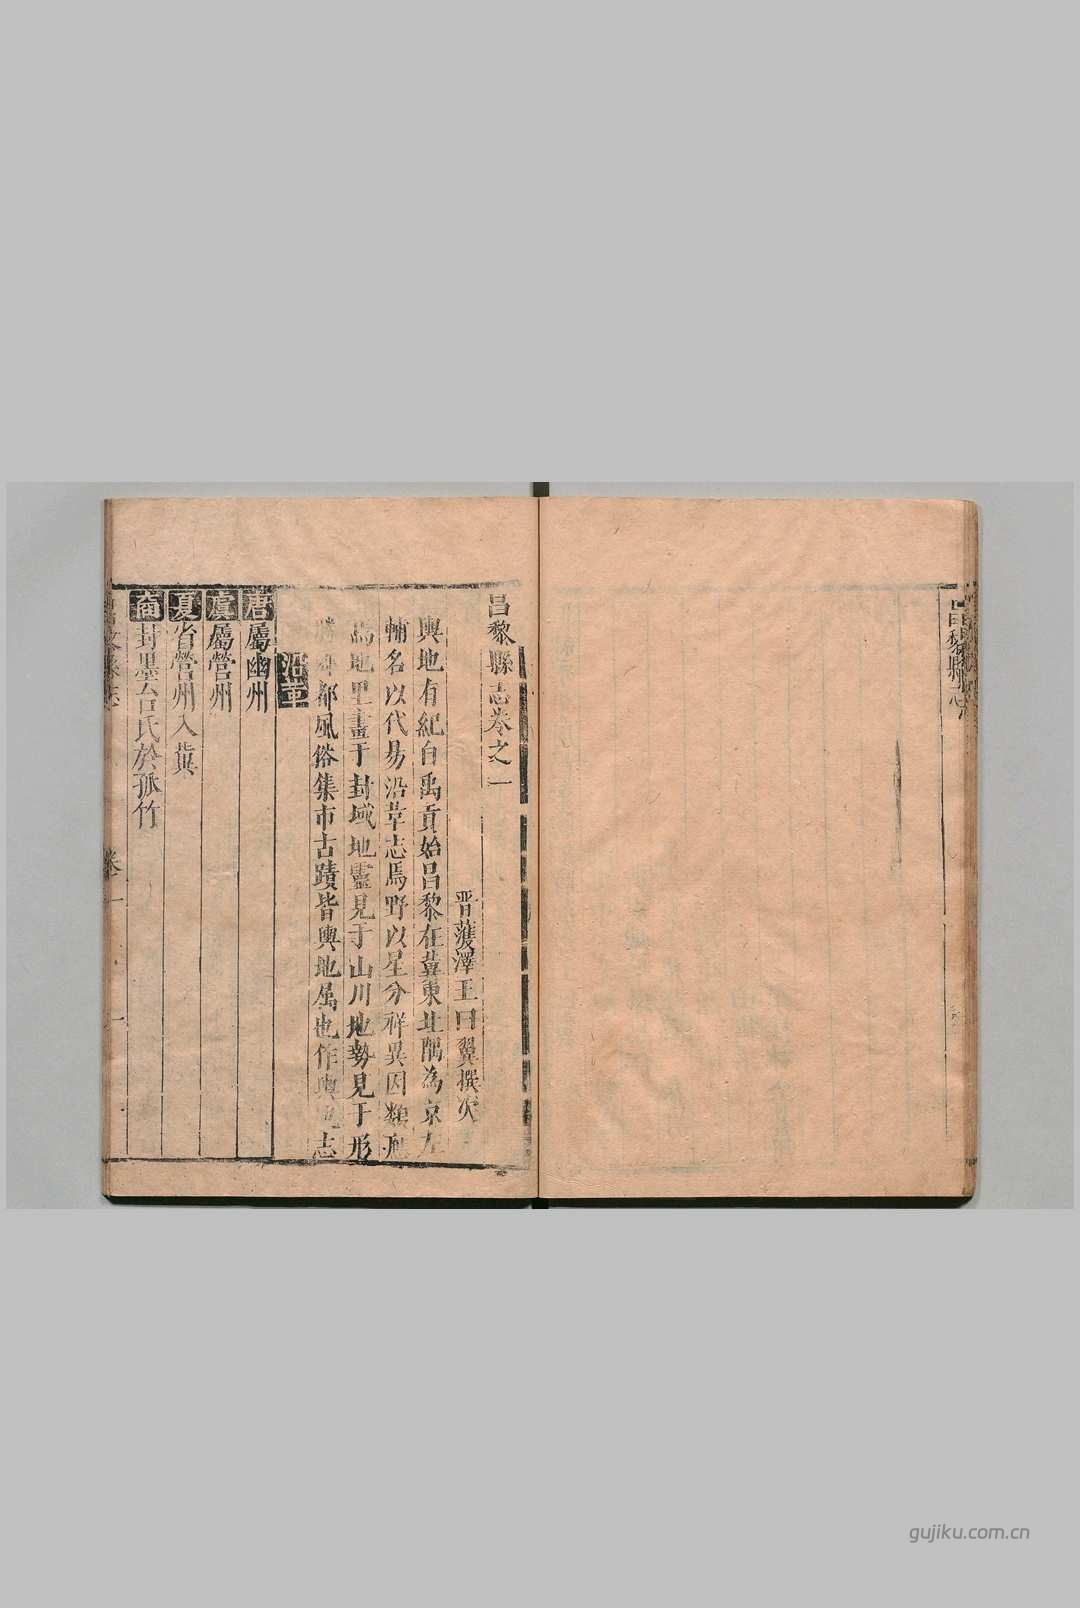 昌黎縣志
昌黎縣志卷之一
晋濩澤王曰翼撰次
輿地有紀自禹貢始昌黎在冀東北隅為京左
輔名以代易沿革志焉野以星分祥異因類應
焉地里畫于封域地靈見于山川地勢見于形
勝 都風俗集市古蹟皆輿地属也作輿地志
沿革
唐屬幽州
虞屬營州
夏省營州入冀
商封墨台氏於孤竹
昌黎縣志 卷一 一
gujiku.com.cn